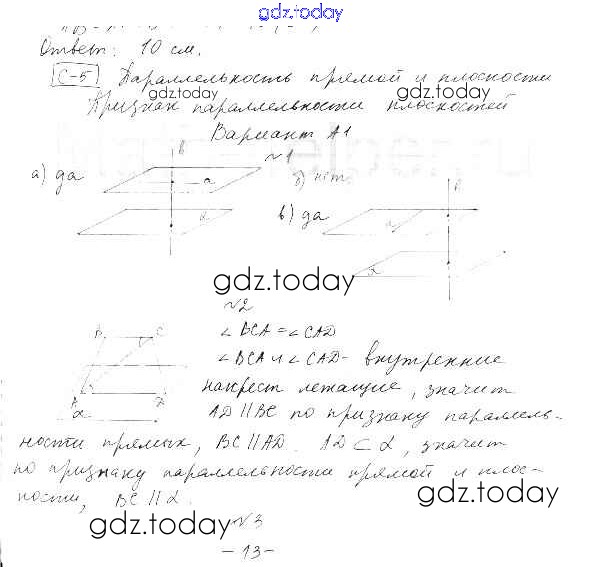 gdz.today
Ответ: 10 см.
С-5 Параллельность прямой и плоскости
gdz.today gdz.today
Признак параллельности плоскостей
Вариант А1
№1
а) да
б) нет
в) да
в
а
α
α
gdz.today gdz.today
№2
B C
A D
α
∠BCA = ∠CAD
∠BCA и ∠CAD - внутренние
накрест лежащие, значит
AD || BC по признаку параллель-
ности прямых, BC || AD. AD ⊂ α, значит
по признаку параллельности прямой и плос-
кости, BC || α.
gdz.today
gdz.today
№3
- 13 -